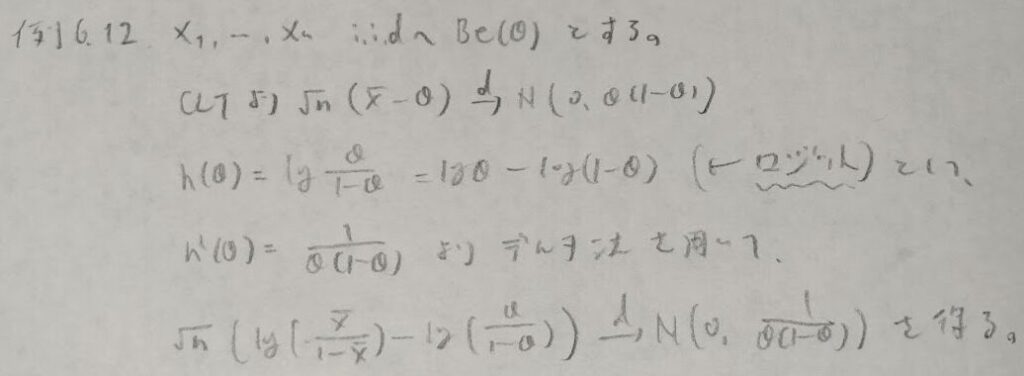 例6.12 X₁, …, Xₙ i.i.d ~ Be(θ) とする。
CLTより √n (X̄ - θ) →d N(0, θ(1-θ))
h(θ) = log θ/(1-θ) = logθ - log(1-θ) (← ロジット) とし、
h'(θ) = 1/(θ(1-θ)) より デルタ法を用いて、
√n (log(X̄/(1-X̄)) - log(θ/(1-θ))) →d N(0, 1/(θ(1-θ))) を得る。